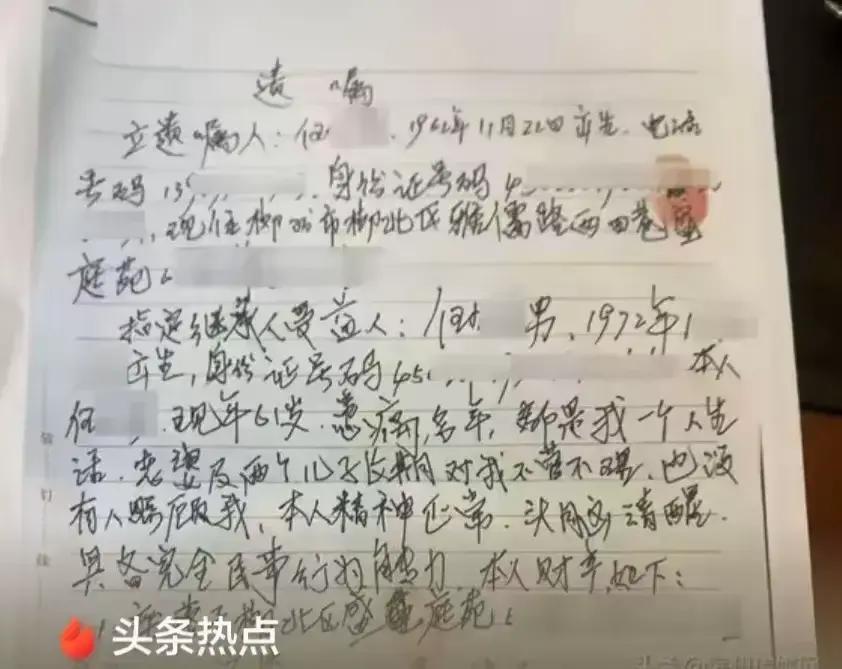 遗嘱
立遗嘱人:任 、1962年11月22日出生、电话
号码13 身份证号码4
现住柳州市柳北区雅儒路西四巷盛
庭苑
指定继承人受益人: 男、1972年1
出生,身份证号码45 本人
任 ,现年61岁、患病多年,都是我一个人生
活、老婆及两个儿子长期对我不管不理、也没
有人照顾我,本人精神正常、头脑清醒、
具备完全民事行为能力、本人财产如下:
柳北区盛 庭苑
头条热点